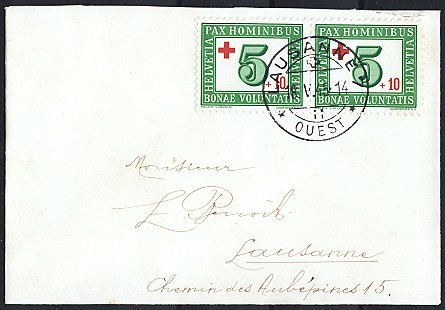 PAX HOMINIBUS PAX HOMINIBUS
HELVETIA 5 +10 HELVETIA 5 +10
BONAE VOLUNTATIS BONAE VOLUNTATIS
LAUSANNE
OUEST
Monsieur
L. Benoit
Lausanne
Chemin des Aubépines 15.